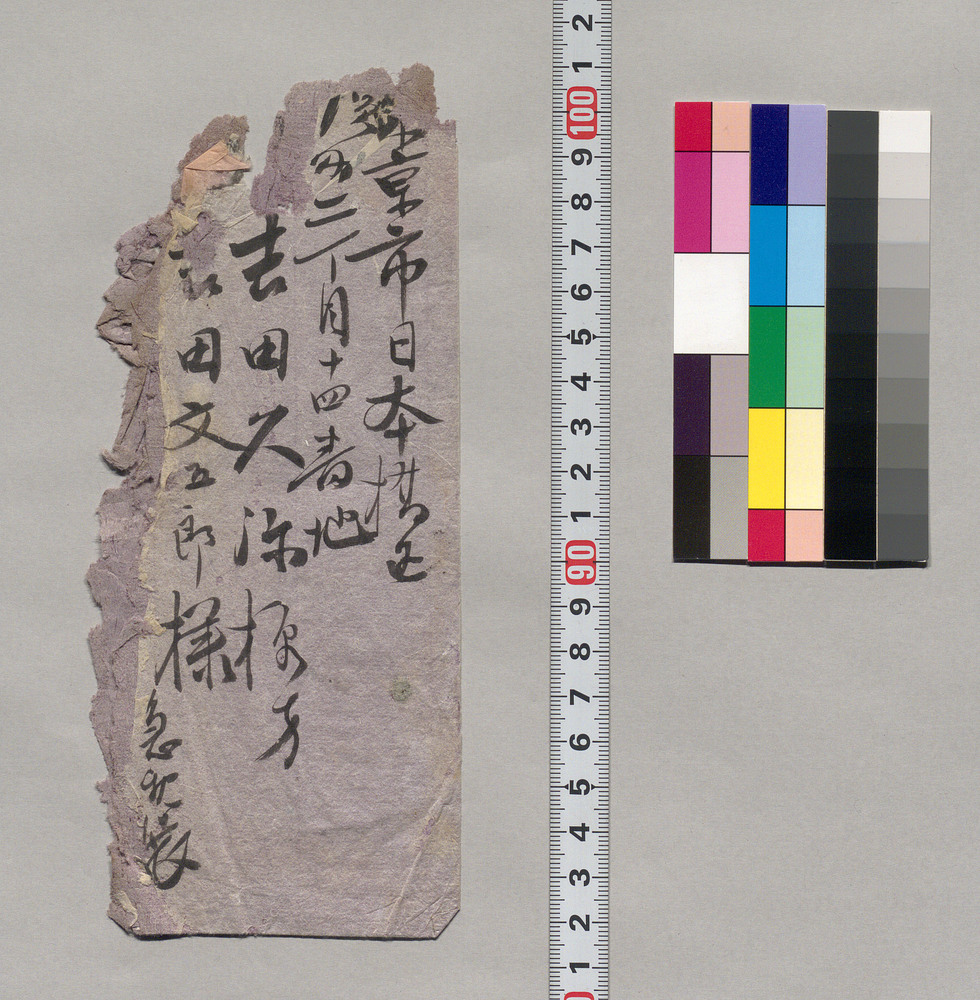 東京市日本橋区
二丁目十四番地
吉田久弥様方
吉田文五郎様
急

2
1
100
9
8
7
6
5
4
3
2
1
90
9
8
7
6
5
4
3
2
1